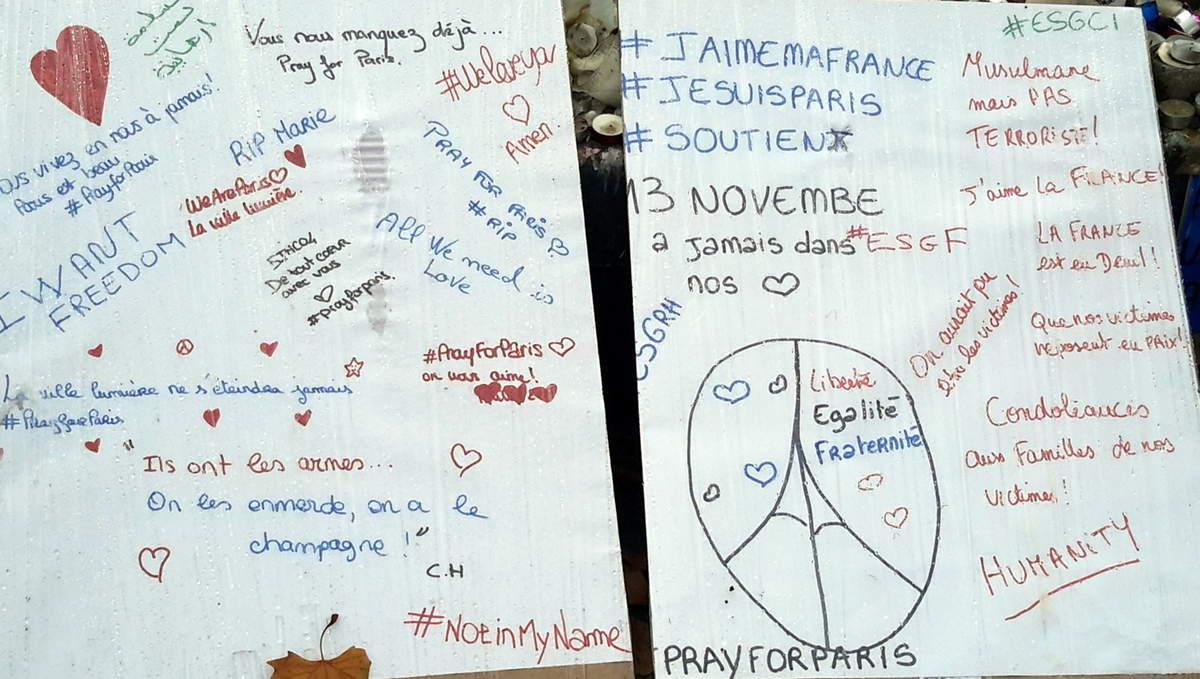 Vous nous manquez déjà...
Pray for Paris.
#WeLoveYou
Amen.
vivez en nous à jamais!
Paris est beau
#PrayforParis
RIP Marie
WeAreParis
La ville lumière.
PRAY FOR PARIS
#RIP
I WANT
FREEDOM
De tout coeur
avec vous
#Prayforparis.
All We need is
Love
#PrayForParis
on vous aime!
ville lumière ne s'éteindra jamais
#PrayforParis
"Ils ont les armes...
On les enmerde, on a le
champagne !"
C.H
#NotinMyName
#ESGCI
# JAIMEMAFRANCE
# JESUISPARIS
# SOUTIEN
13 NOVEMBE
a jamais dans
nos
#ESGF
ESGRH
Musulmane
mais PAS
TERRORISTE!
J'aime La FRANCE!
LA FRANCE
est en Deuil!
On aurait pu
être les victimes!
Que nos victimes
reposent en PAIX!
Liberté
Egalité
Fraternité
Condoléances
aux Familles de nos
victimes!
HUMANITY
PRAYFORPARIS